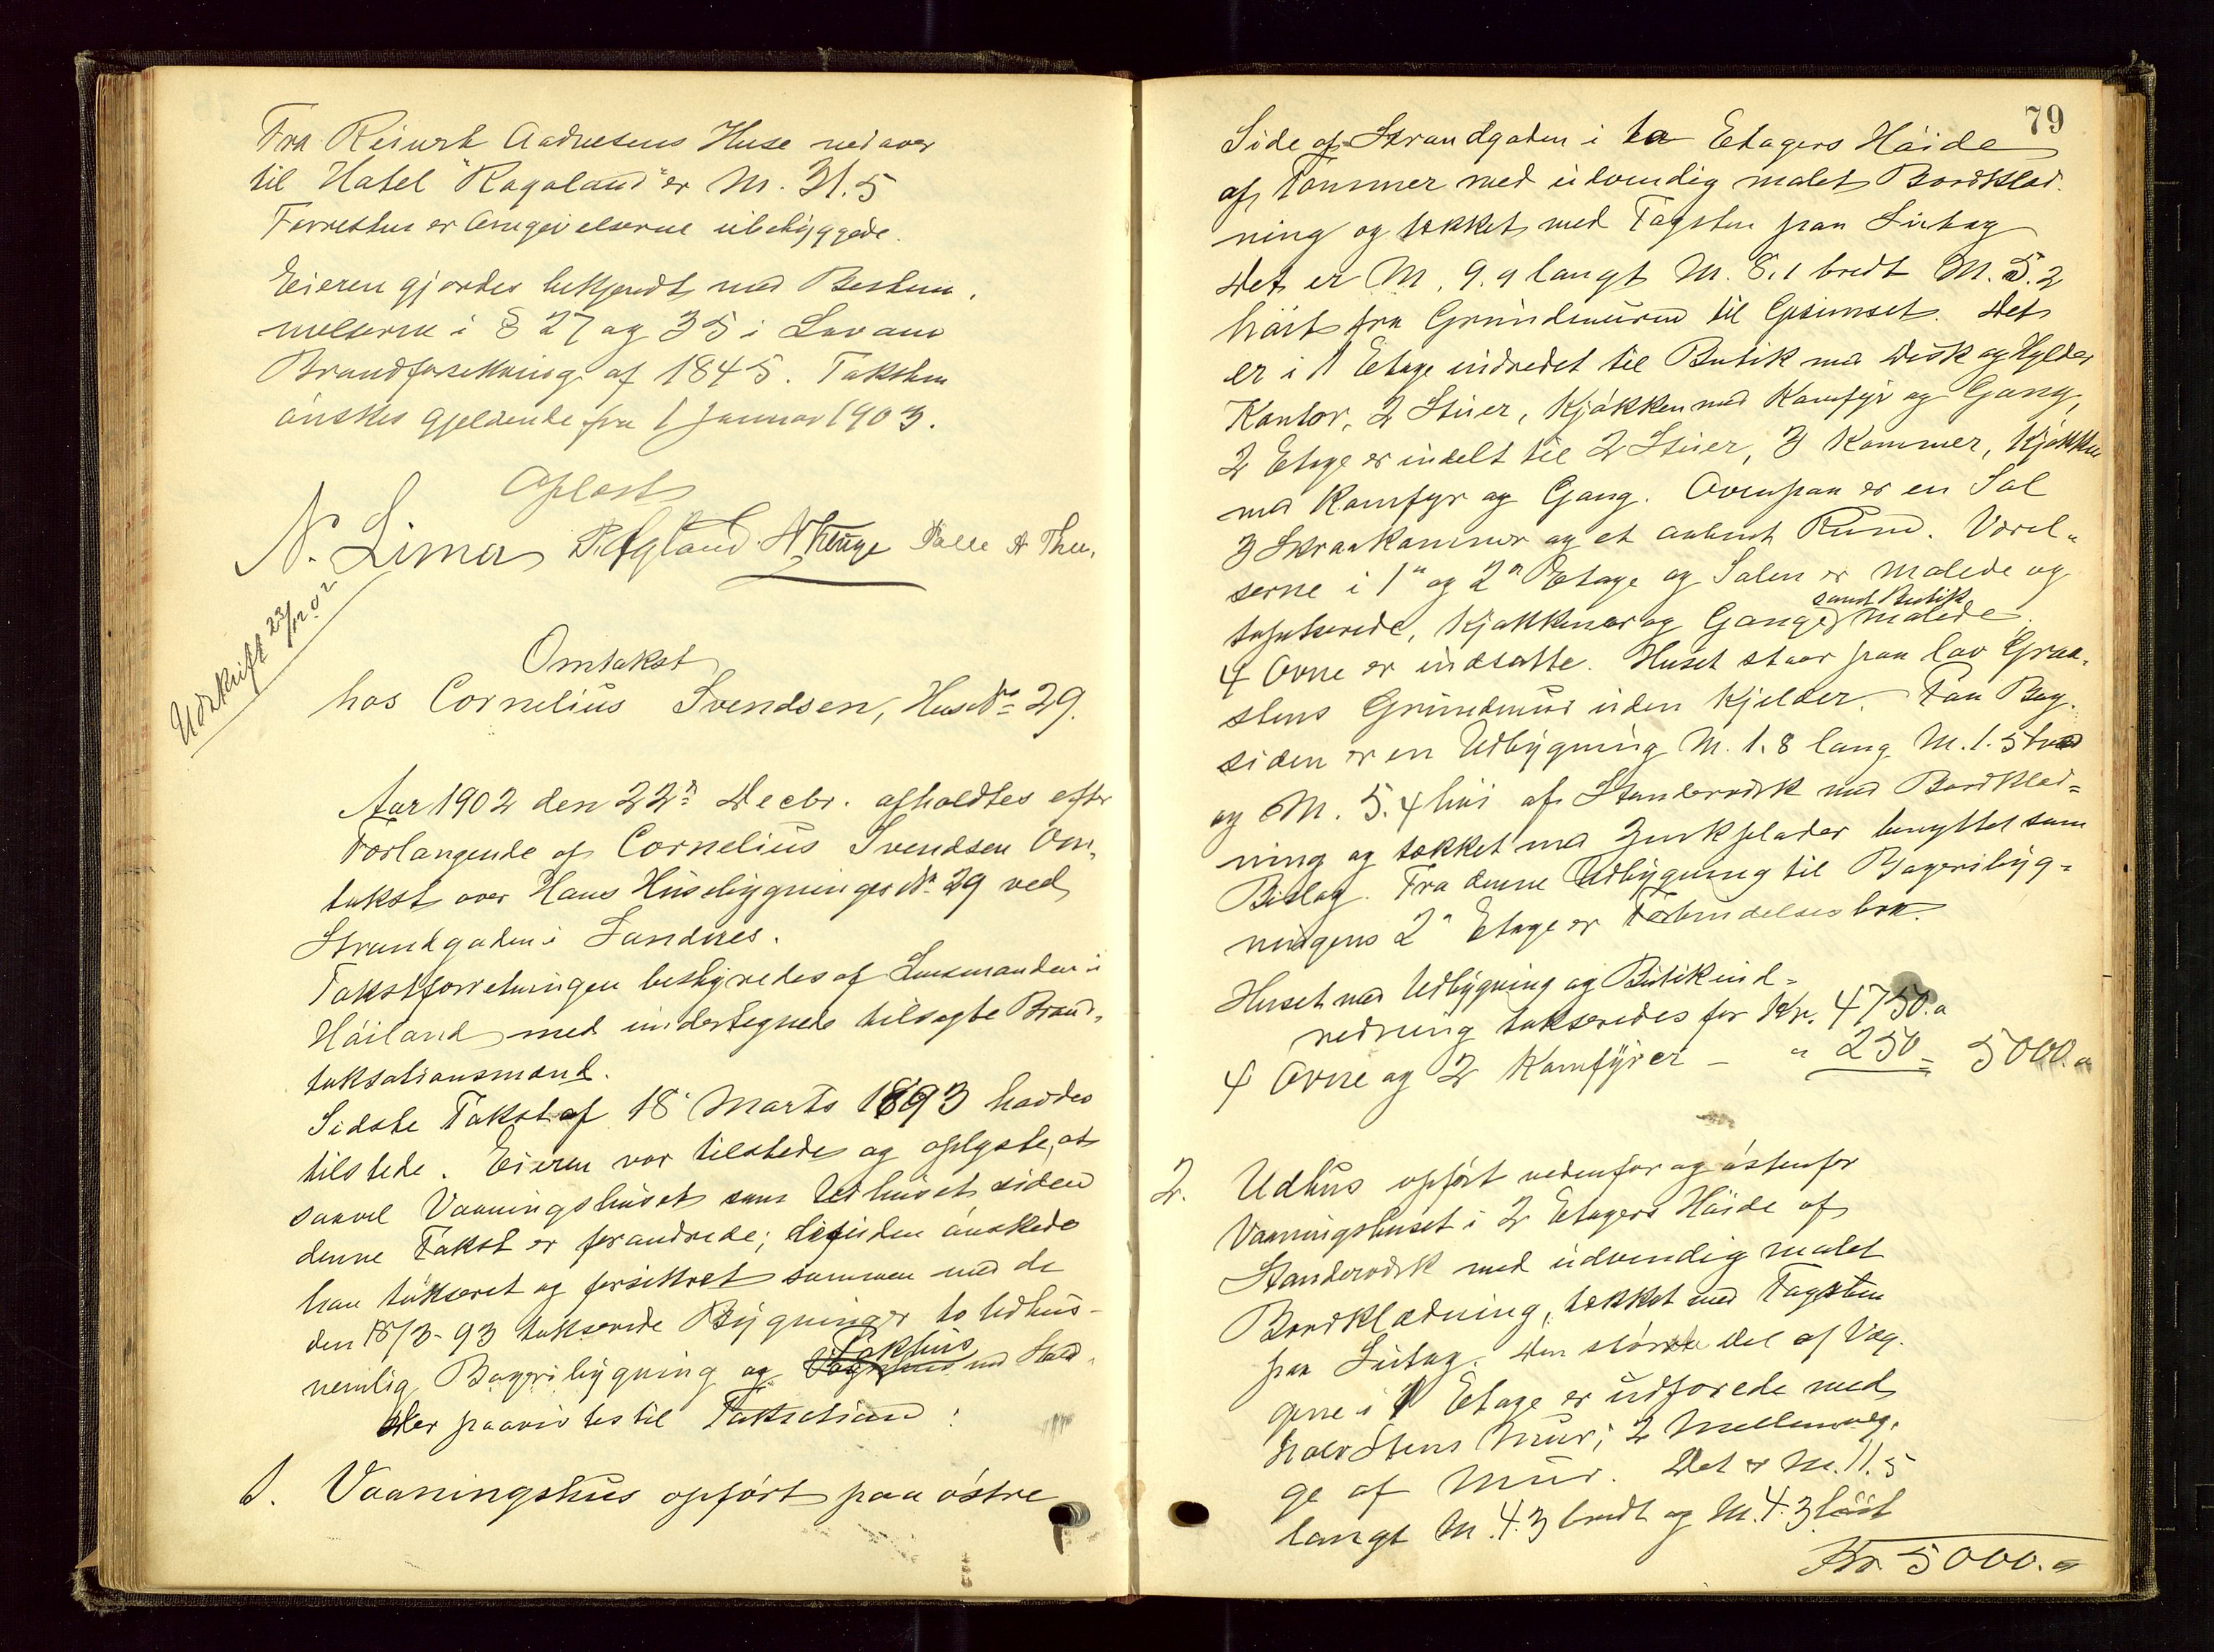 Fra Reinert Aadnesens Huse nedover
til Hotel "Rogaland" er M. 31.5
Forresten er Omgivelserne ubebyggede.
Eieren gjordes bekjendt med Bestem¬
melserne i § 27 og 35 i Lov om
Brandforsikring af 1845. Taksten
ønskes gjeldende fra 1 Januar 1903.
Oplæst
N. Lima
Udskrift 23/12.02
Omtakst
hos Cornelius Svendsen, Hus No 29.
Aar 1902 den 22de Decbr. afholdtes efter
Forlangende af Cornelius Svendsen Om¬
takst over Hans Husebygninger No 29 ved
Strandgaden i Sandnes.
Takstforretningen bestyredes af Lensmanden i
Høiland med undertegnede tilsagte Brand¬
taksationsmænd.
Sidste Takst af 18 Marts 1893 havdes
tilstede. Eieren var tilstede og oplyste, at
saavel Vaaningshuset som Udhuset siden
denne Takst er forandrede; desuden ønskede
han takseret og forsikret sammen med de
den 18/3-93 takserede Bygninger to Udhus-
nemlig Bageribygning og Pakhus med Stald.
Der paavistes til Taksation:
1. Vaaningshus opført paa østre
79
Side af Strandgaden i to Etagers Høide
af Tømmer med udvendig malet Bordklæd¬
ning og tækket med Tagsten paa Sutag
Det er M. 9.9 langt M. 8.1 bredt M. 5.2
høit fra Grundmuren til Gesimset. Det
er i 1 Etage indredet til Butik med Disk og Hylder
Kontor, 2 Stuer, Kjøkken med Komfyr og Gang,
2 Etage er indelt til 2 Stuer, 3 Kammer, Kjøkken
med Komfyr og Gang. Ovenpaa er en Sal
3 Skraakammer og et aabent Rum. Værel¬
serne i 1ste og 2den Etage og Salen er malede og
tapetserede, Kjøkkener og Gange samt Butik malede.
4 Ovne er indsatte. Huset staar paa lav Graa¬
stens Grundmur uden Kjelder. Paa Bag¬
siden er en Udbygning M. 1.8 lang M. 1.5 bred
og M. 5.4 høi af Stenderværk med Bordklæd¬
ning og tækket med Zinkplader benyttet som
Bislag. Fra denne Udbygning til Bageribyg¬
ningens 2den Etage er Forbindelsesbro.
Huset med Udbygning og Butikind¬
redning takseredes for Kr. 4750.
4 Ovne og 2 Komfyrer - " 250 = 5000.
2. Udhus opført nedenfor og østenfor
Vaaningshuset i 2 Etagers Høide af
Stenderværk med udvendig malet
Bordklædning, tækket med Tagsten
paa Sutag. Den største Del af Væg¬
gene i 1 Etage er udforede med
halv Stens Mur; 2 Mellemvæg¬
ge af Mur. Det er M. 11.5
langt M. 4.3 bredt og M. 4.3 høit
Kr. 5000.